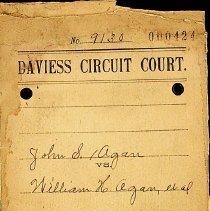 No. 9130 000424
DAVIESS CIRCUIT COURT.
John S. Agan
vs.
William H. Agan, et al